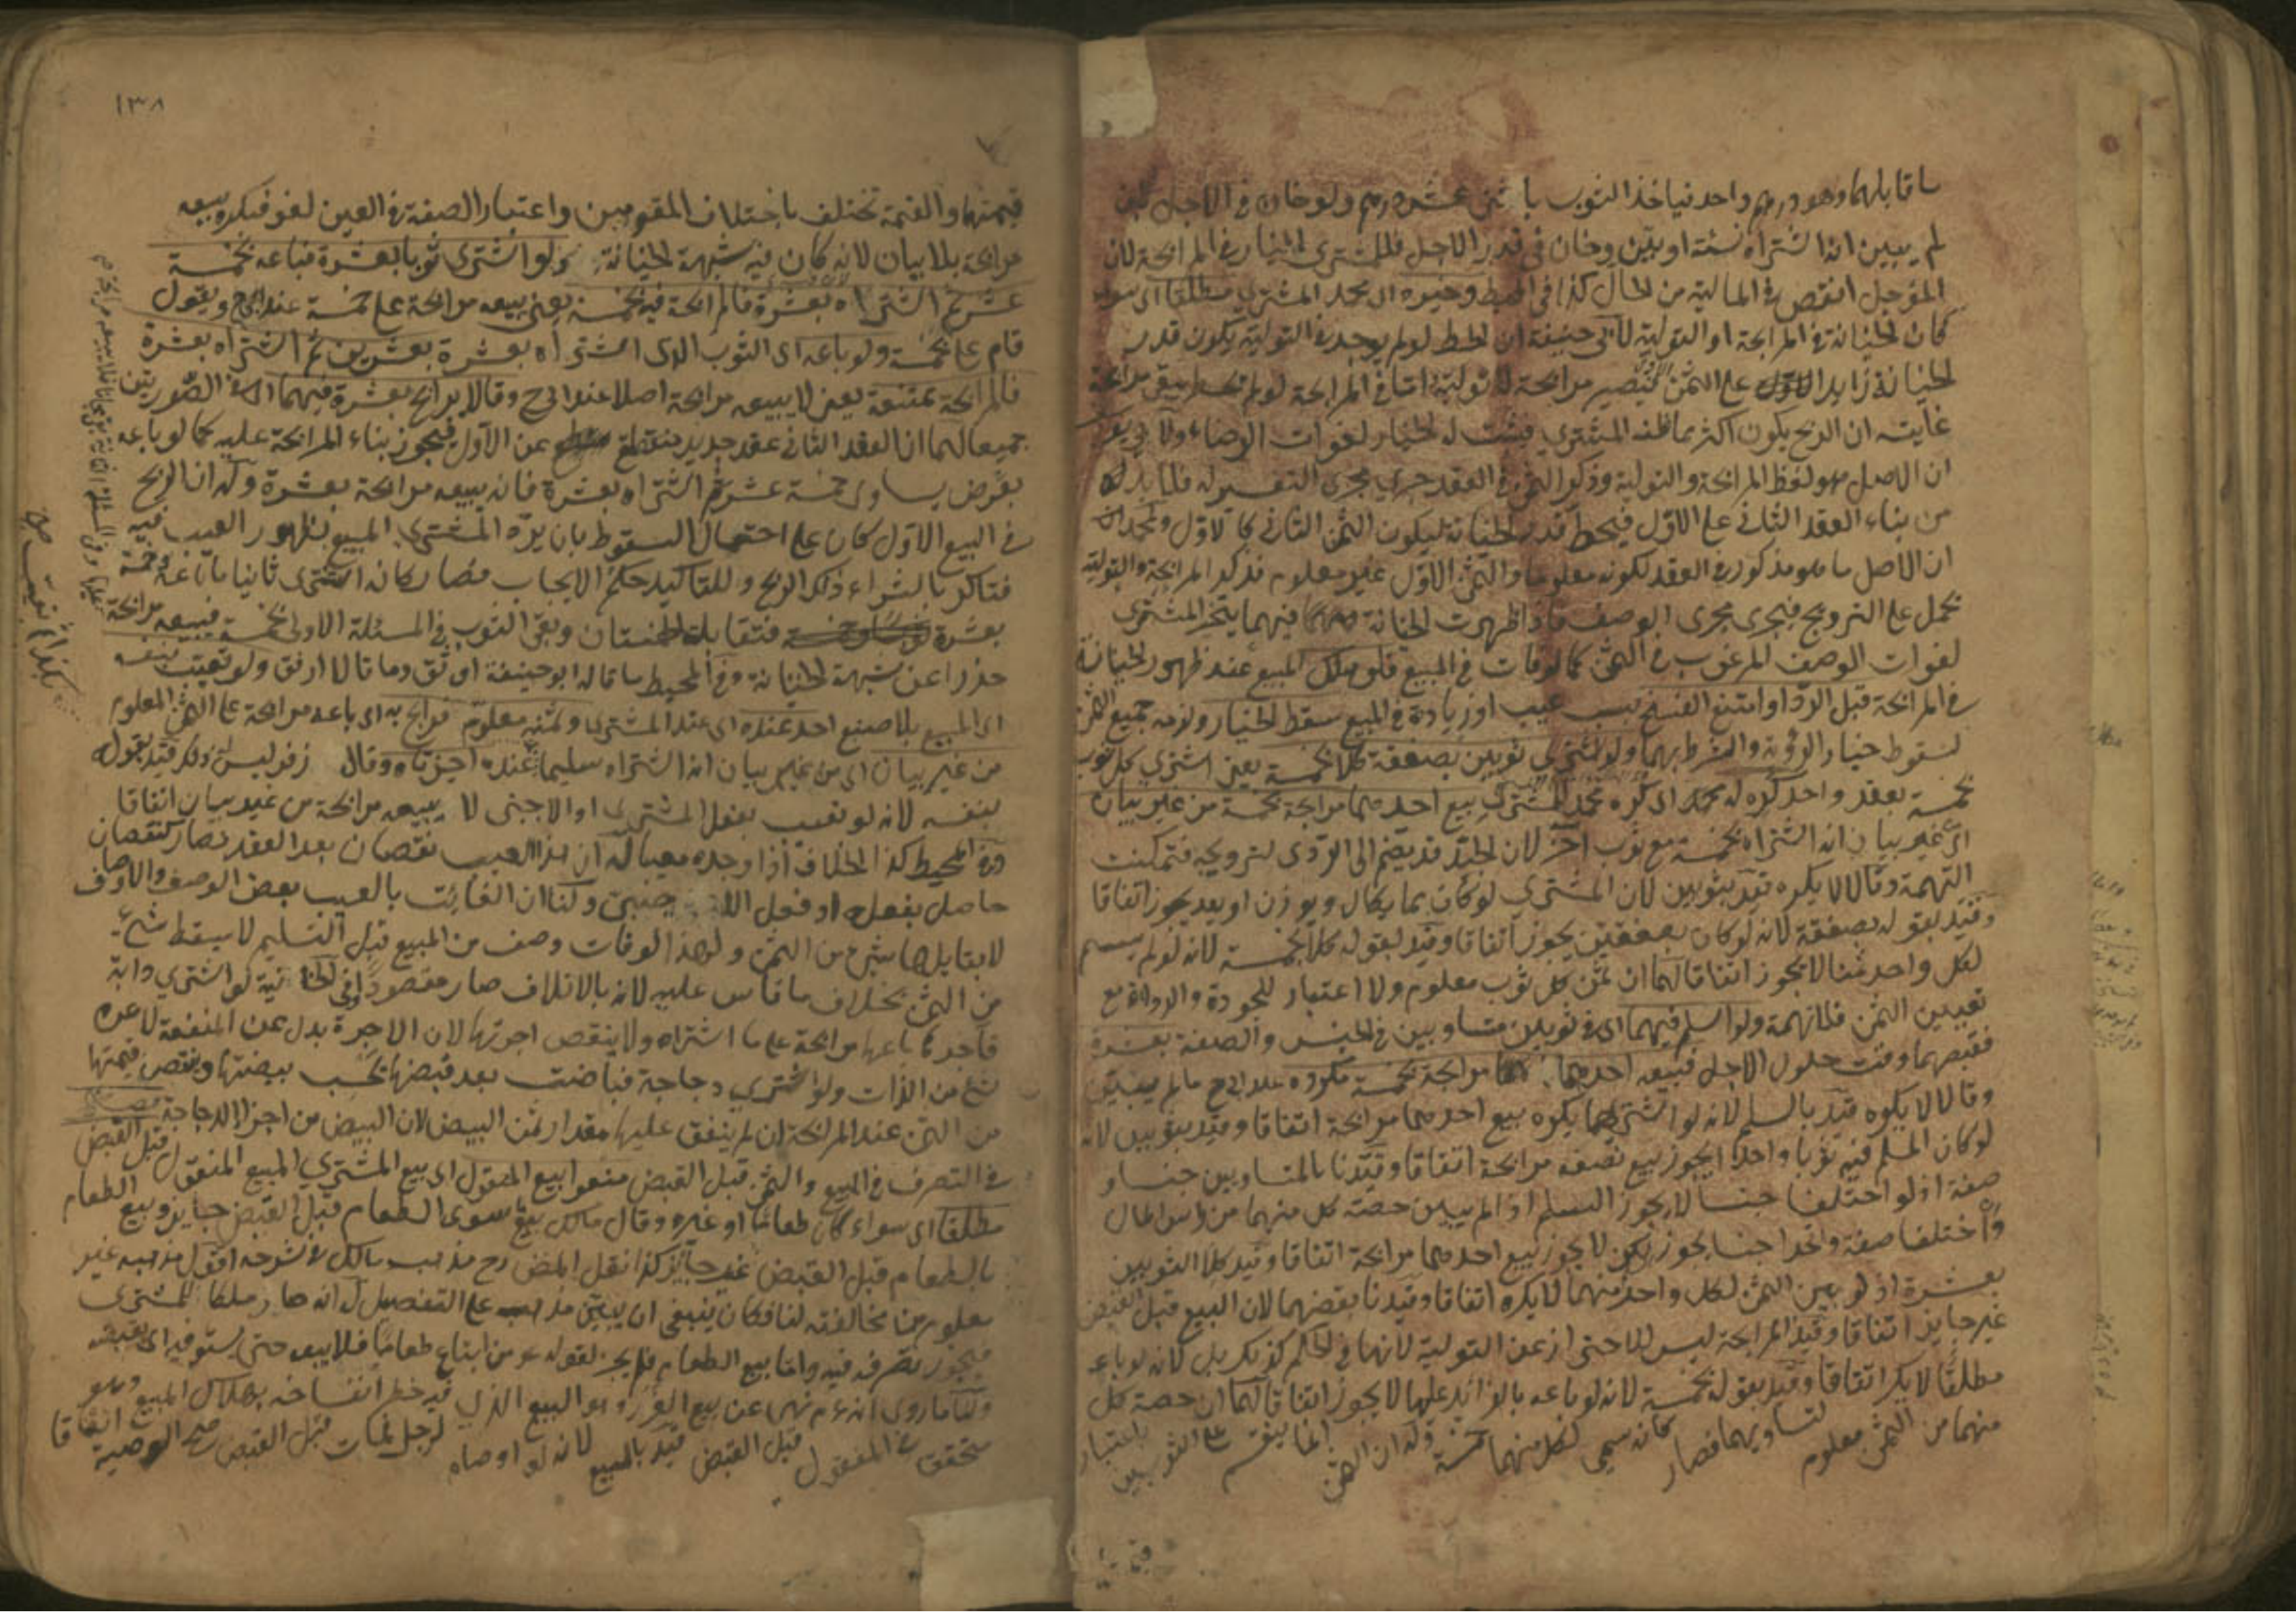 ما قابلهما وهو درهم واحد فياخذ الثوب باثنى عشر درهم ولو خان في الاجل
لم يبين انه اشتراه نسئة او بيّن وخان في قدر الاجل فللمشترى الخيار في المرابحة لان
المؤجل انقص في المالية من الحال كذا في المحيط وخيره اى محمد المشترى مطلقا اى سواء
كان الخيانة في المرابحة او التولية لابى حنيفة ان الحط لو لم يوجد في التولية يكون قدر
الخيانة زايدا على الثمن فيصير مرابحة لا تولية اما في المرابحة لو لم يحط يبقى مرابحة
غايته ان الربح يكون اكثر مما ظنه المشترى فيثبت له الخيار لفوات الرضاء ولابى يوسف
ان الاصل هو لفظ المرابحة والتولية وذكر الثمن في العقد جرى مجرى التفسير له فلا بد له
من بناء العقد الثانى على الاوّل فيحط قدر الخيانة ليكون الثمن الثانى كالاوّل ولمحمد
ان الاصل ما هو مذكور في العقد لكونه معلوما والثمن الاوّل غير معلوم فذكر المرابحة والتولية
يحمل على الترويج فيجرى مجرى الوصف فاذا ظهرت الخيانة فيهما يتخير المشترى
لفوات الوصف المرغوب في الثمن كما لو فات في المبيع فلو هلك المبيع عند ظهور الخيانة
في المرابحة قبل الردّ او امتنع الفسخ بسبب عيب او زيادة في المبيع سقط الخيار ولزمه جميع الثمن
لسقوط خيار الرؤية والشرط بهما ولو اشترى ثوبين بصفقة كلا بخمسة يعنى اشترى كل ثوب
بخمسة بعقد واحد كره له محمد اى كره محمد للمشترى بيع احدهما مرابحة بخمسة من غير بيان
اى غير بيان انه اشتراه بخمسة مع ثوب آخر لان الجيّد قد يضم الى الردى لترويجه فتمكنت
التهمة وقالا لا يكره قيد بثوبين لان المشترى لو كان مما يكال ويوزن او يعد يجوز اتفاقا
وقيّد بقوله بصفقة لانه لو كان بصفقتين يجوز اتفاقا وقيد بقوله كلا بخمسة لانه لو لم يسم
لكل واحد ثمنا لا يجوز اتفاقا لهما ان ثمن كل ثوب معلوم ولا اعتبار للجودة والرداءة مع
تعيين الثمن فلا تهمة ولو اسلم فيهما اى في ثوبين متساويين في الجنس والصفة بعشرة
فقبضهما وقت حلول الاجل فبيعه احدهما مرابحة بخمسة مكروه عند ابى ح ما لم يبين
وقالا لا يكره قيد بالسلم لانه لو اشتراهما يكره بيع احدهما مرابحة اتفاقا وقيد بثوبين لانه
لو كان المسلم فيه ثوبا واحدا يجوز بيع نصفه مرابحة اتفاقا وقيّدنا بالمتساويين جنسا و
صفة اذ لو اختلفا جنسا لا يجوز السلم اذا لم يبين حصة كل منهما من راس المال
واختلفا صفة واتحدا جنسا يجوز لكن لا يجوز بيع احدهما مرابحة اتفاقا وقيد كلا الثوبين
بعشرة اذ لو بين الثمن لكل واحد منهما لا يكره اتفاقا وقيدنا بقبضهما لان البيع قبل القبض
غير جايز اتفاقا وقيد المرابحة ليس للاحتراز عن التولية لانها في الحكم كذلك بل لانه لو باعه
مطلقًا لا يكره اتفاقا وقيد بقوله بخمسة لانه لو باعه بالزائد عليها لا يجوز اتفاقا لهما ان حصة كل
منهما من الثمن معلوم لتساويهما فصار كانه سمى لكل منهما خمسة وله ان الثمن انما ينقسم على الثوبين باعتبار
١٣٨
قيمتهما والقيمة تختلف باختلاف المقومين واعتبار الصفة في العين لغو فيكره بيعه
مرابحة بلا بيان لانه كان فيه شبهة الخيانة ولو اشترى ثوبا بعشرة فباعه بخمسة
عشر ثم اشتراه بعشرة فالمرابحة فيه بخمسة يعنى يبيعه مرابحة على خمسة عند ابى ح ويقول
قام على بخمسة ولو باعه اى الثوب الذى اشتراه بعشرة بعشرين ثم اشتراه بعشرة
فالمرابحة ممتنعة يعنى لا يبيعه مرابحة اصلا عند ابى ح وقالا يرابح بعشرة فيهما اى في الصورتين
جميعا لهما ان العقد الثانى عقد جديد منقطع عن الاوّل فيجوز بناء المرابحة عليه كما لو باعه
بعرض يساوى خمسة عشر ثم اشتراه بعشرة فانه يبيعه مرابحة بعشرة وله ان الربح
في البيع الاوّل كان على احتمال السقوط بان يردّه المشترى المبيع بظهور العيب فيه
فتاكد بالشراء ذلك الربح وللتاكيد حكم الايجاب فصار كانه اشترى ثانيا متاعه وخمسة
بعشرة فتقابله خمستان وبقى الثوب في المسئلة الاولى بخمسة فيبيعه مرابحة
حذرا عن شبهة الخيانة وفى المحيط ما قاله ابو حنيفة اوثق وما قالا ارفق ولو تعيب بنفسه
اى المبيع بلا صنع احد عنده اى عند المشترى وثمنه معلوم فرابح به اى باعه مرابحة على الثمن المعلوم
من غير بيان اى من غير بيان انه اشتراه سليما عنده اجزناه وقال زفر ليس ذلك قيد بقوله
بنفسه لانه لو تعيب بفعل المشترى او الاجنبى لا يبيعه مرابحة من غير بيان اتفاقا
وفى المحيط كذا الخلاف اذا وجده معيبا له ان هذا العيب نقصان بعد العقد فصار كنقصان
حاصل بفعله او فعل الاجنبى ولنا ان الفائت بالعيب بعض الوصف والاوصاف
لا يقابلها شئ من الثمن ولهذا لو فات وصف من المبيع قبل التسليم لا يسقط شئ
من الثمن بخلاف ما قاس عليه لانه بالاتلاف صار مقصودا وفى الخانية لو اشترى دابة
فآجرها باعها مرابحة على ما اشتراه ولا ينقص اجرتها لان الاجرة بدل عن المنفعة لا عن
شئ من الذات ولو اشترى دجاجة فباضت بعد قبضها تحسب بيضتها وينقص قيمتها
من الثمن عند المرابحة ان لم ينفق عليها مقدار ثمن البيض لان البيض من اجزاء الدجاجة فصل
في التصرف في المبيع والثمن قبل القبض منعوا بيع المنقول اى بيع المشترى المبيع المنقول قبل القبض
مطلقا اى سواء كان طعاما او غيره وقال مالك بيع سوى الطعام قبل القبض جايز وبيع الطعام
بالطعام قبل القبض غير جائز كذا نقل المص رح مذهب مالك في شرحه اقول مذهبه غير
معلوم من مخالفته لنا فكان ينبغى ان يبين مذهبه على التفصيل له انه صار ملكا للمشترى
فيجوز تصرفه فيه واما بيع الطعام فلم يجز لقوله ع م من ابتاع طعاما فلا يبيعه حتى يستوفيه اى يقبضه
ولنا ما روى انه ع م نهى عن بيع الغرر وهو البيع الذى فيه خطر انفساخه بهلاك المبيع وهو
متحقق في المنقول قبل القبض قيد بالمبيع لانه لو اوصاه لرجل فمات قبل القبض صح الوصية اتفاقا